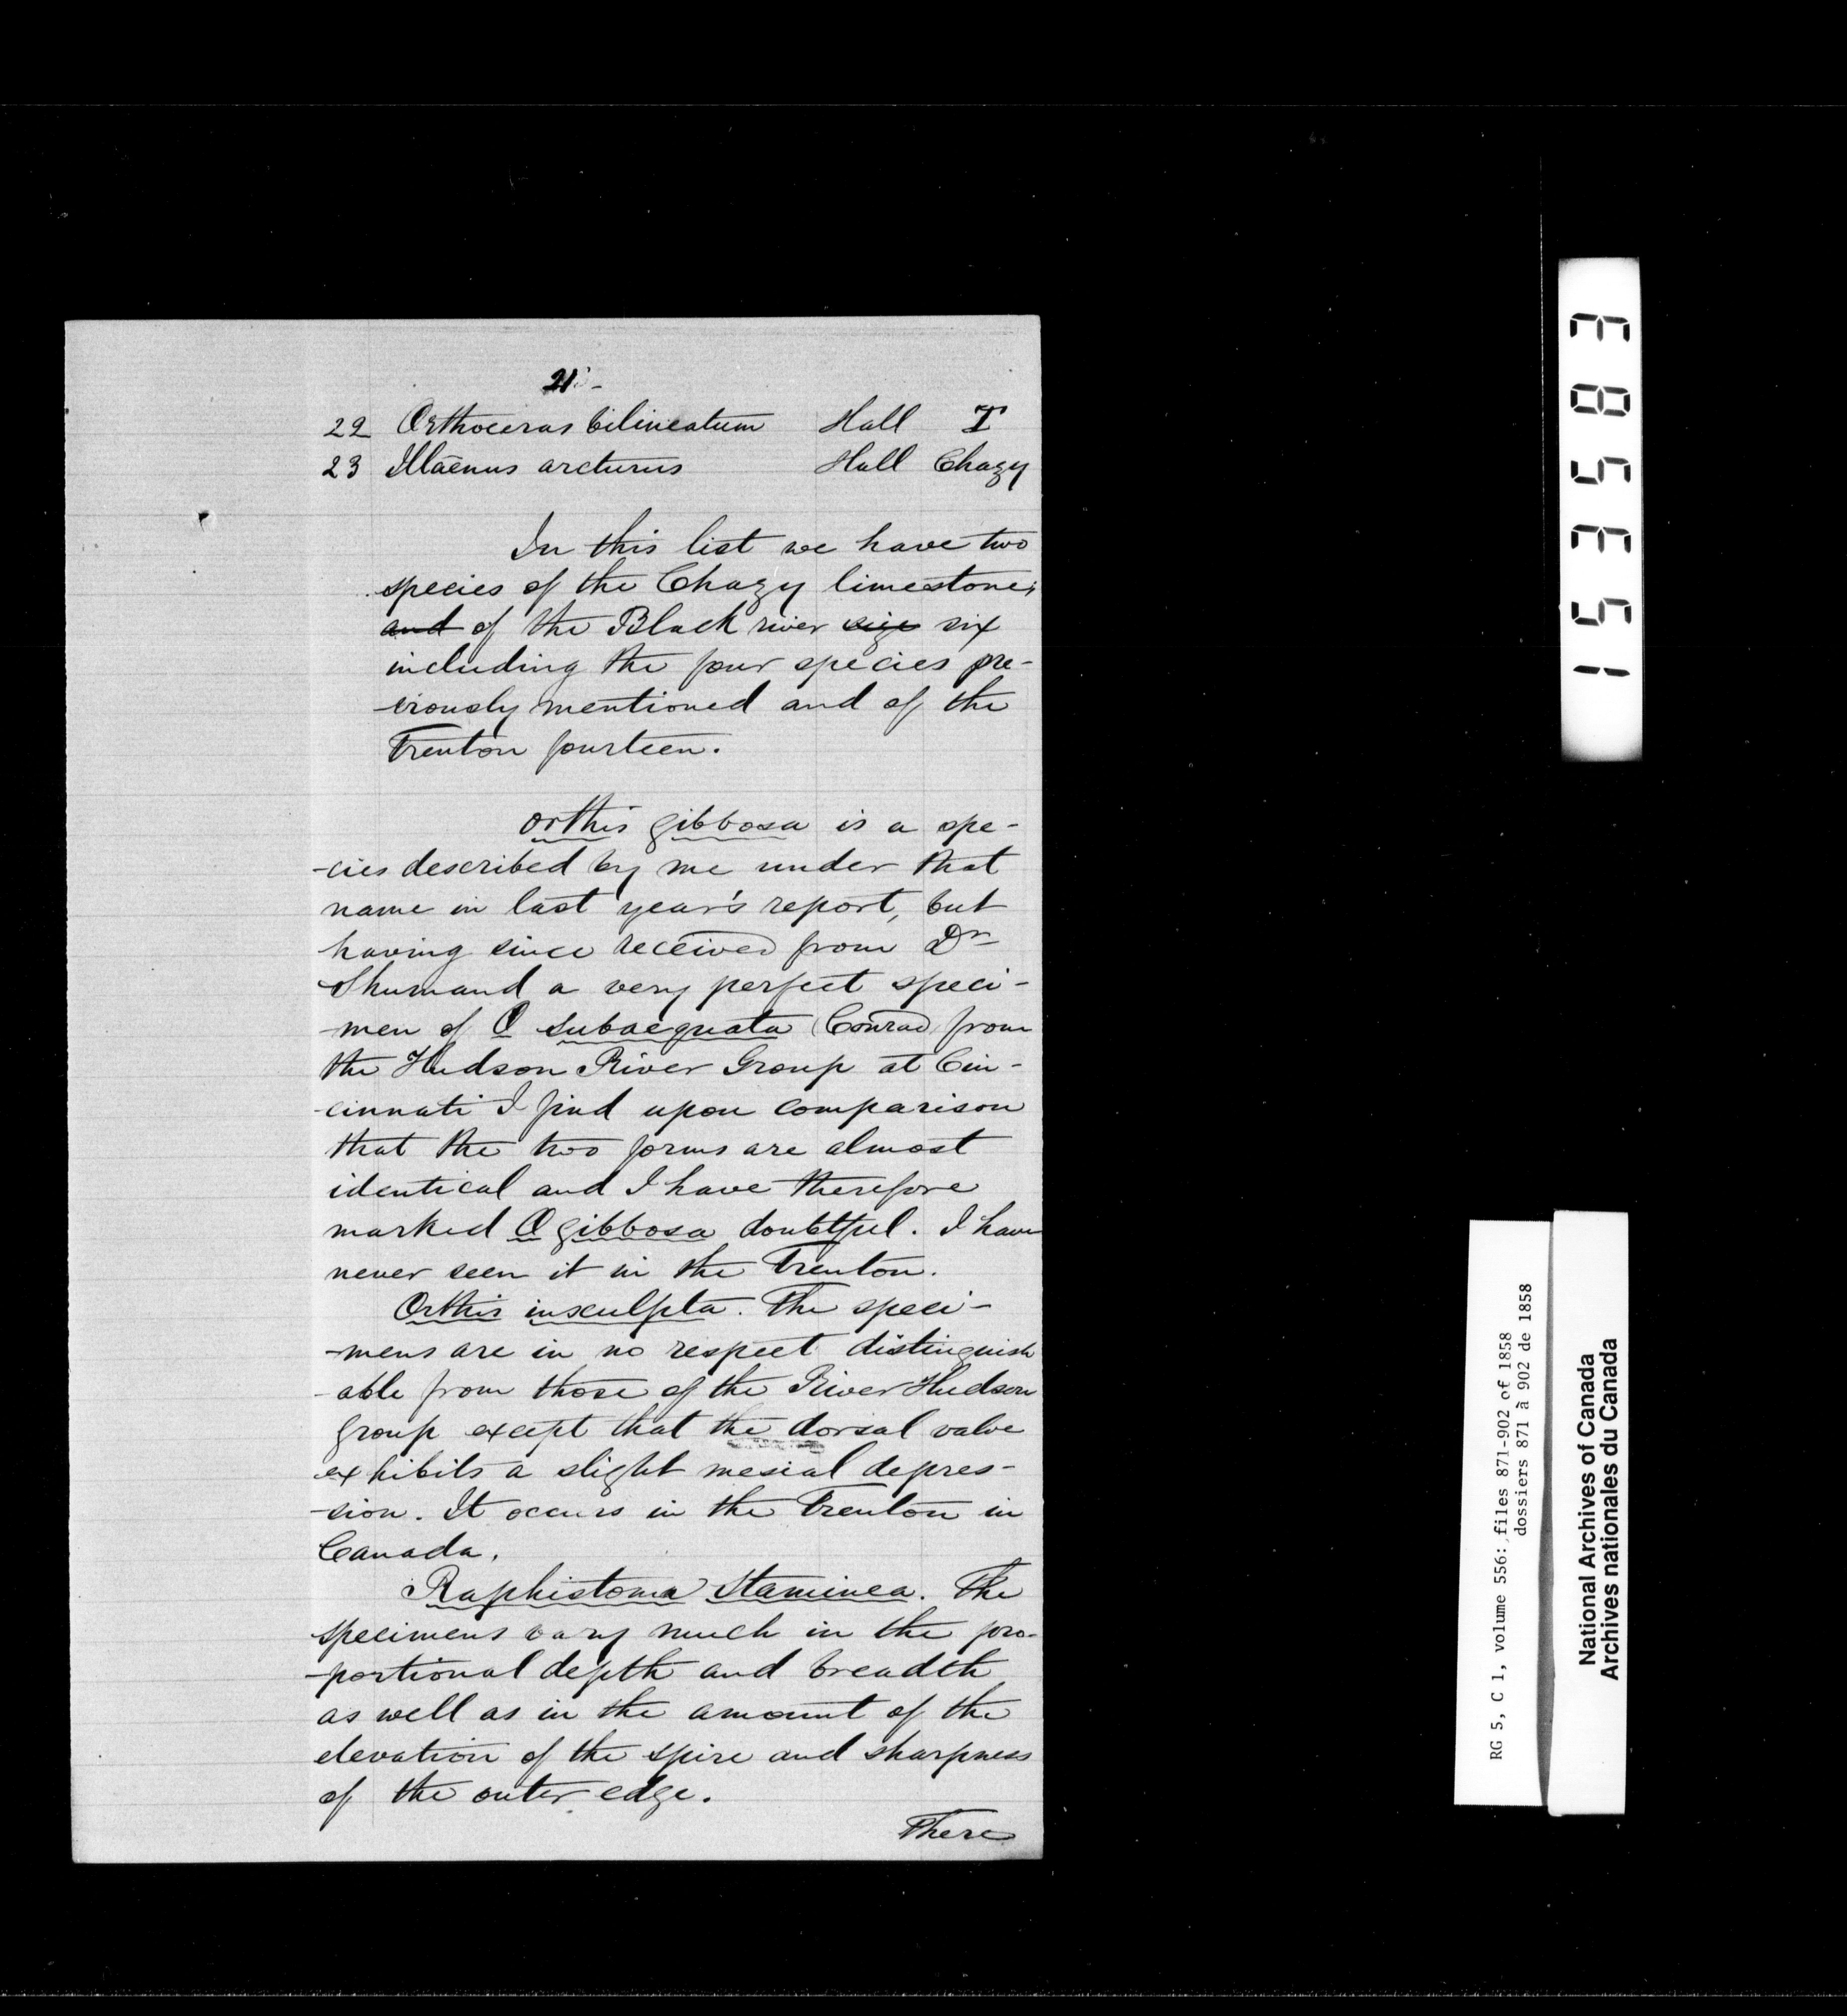 21 -
22 Orthoceras bilineatum Hall T
23 Illaenus arcturus Hall Chazy
In this list we have two
species of the Chazy limestone;
and of the Black river six
including the four species pre-
-viously mentioned and of the
Trenton fourteen.
Orthis gibbosa is a spe-
-cies described by me under that
name in last year's report, but
having since received from Dr
Shumard a very perfect speci-
-men of O subaequata (Conrad) from
the Hudson River Group at Cin-
-cinnati I find upon comparison
that the two forms are almost
identical and I have therefore
marked O gibbosa doubtful. I have
never seen it in the Trenton.
Orthis insculpta. The speci-
-mens are in no respect distinguish
-able from those of the River Hudson
group except that the dorsal valve
exhibits a slight mesial depres-
-sion. It occurs in the Trenton in
Canada.
Raphistoma Staminea. The
specimens vary much in the pro-
-portional depth and breadth
as well as in the amount of the
elevation of the spire and sharpness
of the outer edge.
There
153583
RG 5, C 1, volume 556: files 871-902 of 1858
dossiers 871 à 902 de 1858
National Archives of Canada
Archives nationales du Canada